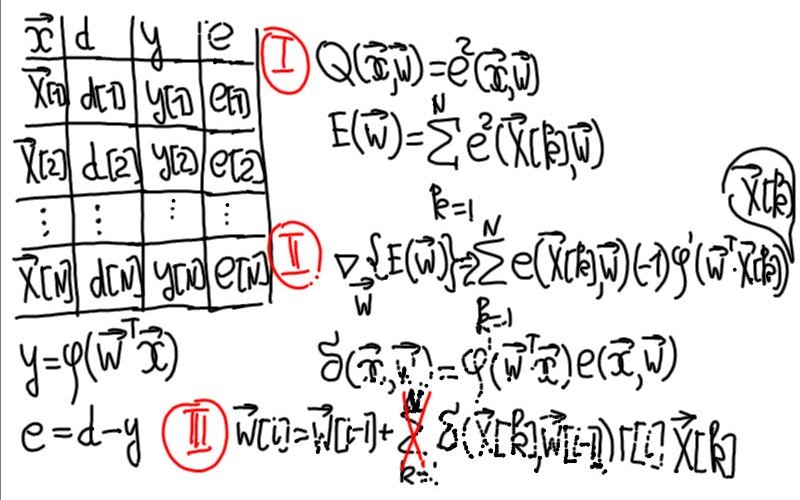 x⃗ d y e
X⃗[1] d[1] y[1] e[1]
X⃗[2] d[2] y[2] e[2]
⋮ ⋮ ⋮ ⋮
X⃗[N] d[N] y[N] e[N]
y=φ(w⃗ᵀx⃗)
e=d-y
I Q(x⃗,w⃗)=e²(x⃗,w⃗)
E(w⃗)=∑_{k=1}^{N} e²(X⃗[k],w⃗)
X⃗[k]
II ∇_w⃗{E(w⃗)}=2∑_{k=1}^{N} e(X⃗[k],w⃗)(-1)φ'(w⃗ᵀ·X⃗[k])
δ(x⃗,w⃗)=φ'(w⃗ᵀx⃗)e(x⃗,w⃗)
III w⃗[i]=w⃗[i-1]+∑_{k=1}^{N} δ(X⃗[k],w⃗[i-1])Γ[i] X⃗[k]